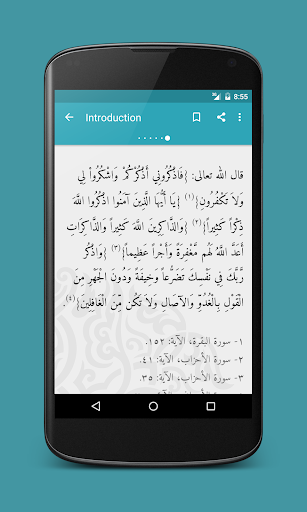 3G 8:55
Introduction
قال الله تعالى: {فَاذْكُرُونِي أَذْكُرْكُمْ وَاشْكُرُواْ لِي
وَلَا تَكْفُرُونِ}(١) {يَا أَيُّهَا الَّذِينَ آمَنُوا اذْكُرُوا اللَّهَ
ذِكْراً كَثِيراً}(٢) {وَالذَّاكِرِينَ اللَّهَ كَثِيراً وَالذَّاكِرَاتِ
أَعَدَّ اللَّهُ لَهُم مَّغْفِرَةً وَأَجْراً عَظِيماً}(٣) {وَاذْكُر
رَّبَّكَ فِي نَفْسِكَ تَضَرُّعاً وَخِيفَةً وَدُونَ الْجَهْرِ مِنَ
الْقَوْلِ بِالْغُدُوِّ وَالآصَالِ وَلاَ تَكُن مِّنَ الْغَافِلِينَ}(٤).
١- سورة البقرة، الآية: ١٥٢.
٢- سورة الأحزاب، الآية: ٤١.
٣- سورة الأحزاب، الآية: ٣٥.